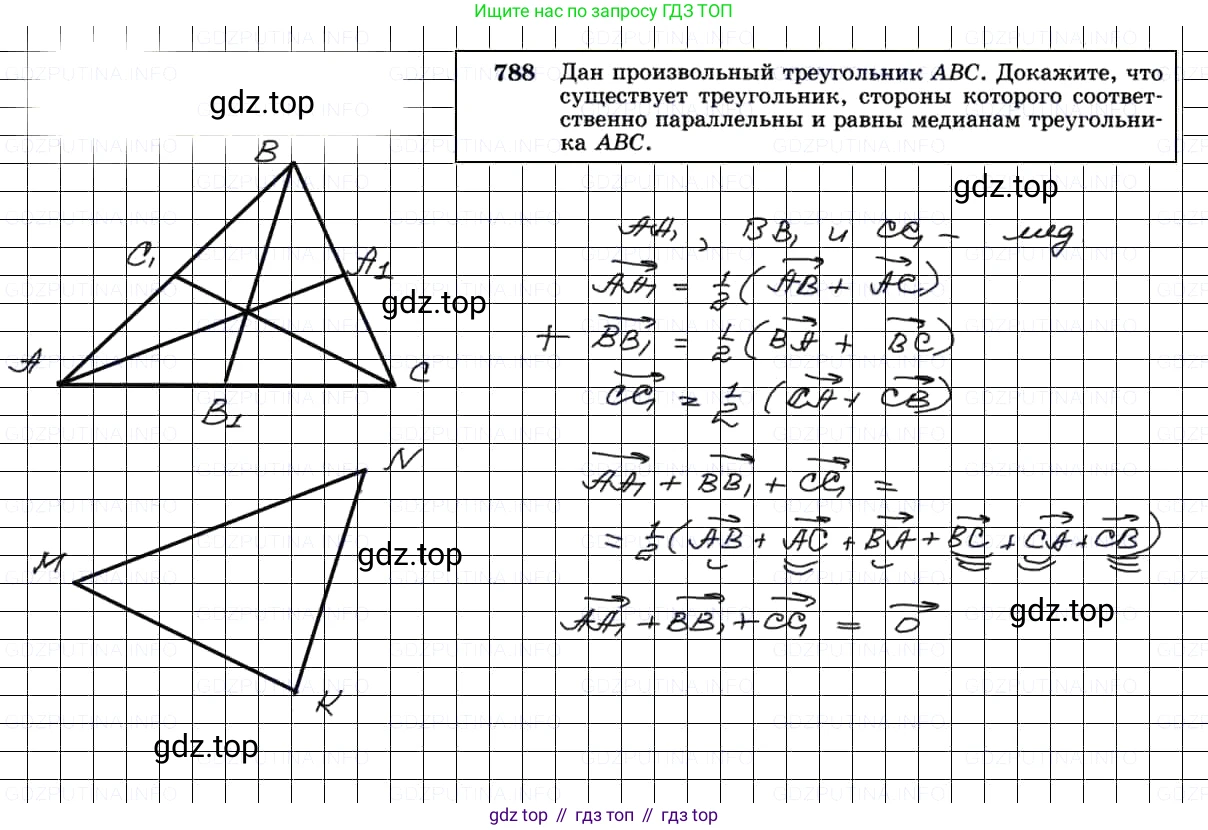 Ищите нас по запросу ГДЗ ТОП
788 Дан произвольный треугольник ABC. Докажите, что
существует треугольник, стороны которого соответ-
ственно параллельны и равны медианам треугольни-
ка ABC.
gdz.top
gdz.top
B
C₁
A1
gdz.top
A
C
B1
AA₁, BB₁ и CC₁ – мед.
AA₁ = 1/2 (AB + AC)
+ BB₁ = 1/2 (BA + BC)
CC₁ = 1/2 (CA + CB)
N
M
gdz.top
K
gdz.top
AA₁ + BB₁ + CC₁ =
= 1/2 (AB + AC + BA + BC + CA + CB)
AA₁ + BB₁ + CC₁ = 0
gdz.top
GDZPUTINA.INFO
gdz top // гдз топ // gdz top